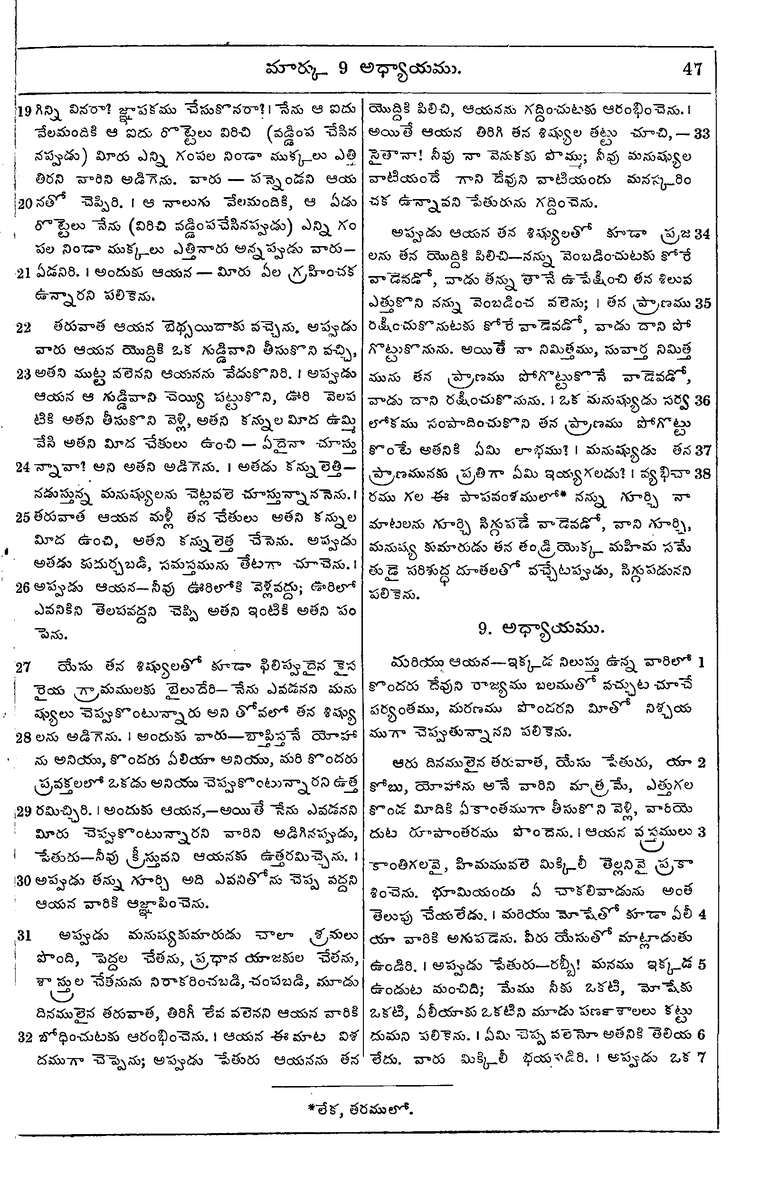 మార్కు 9 అధ్యాయము. 47
19 గిన్ని వినరా? జ్ఞాపకము చేసుకొనరా? । నేను ఆ ఐదు
వేలమందికి ఆ ఐదు రొట్టెలు విరిచి (వడ్డింప చేసిన
నప్పుడు) మీరు ఎన్ని గంపల నిండా ముక్కలు ఎత్తి
తిరని వారిని అడిగెను. వారు — పన్నెండని ఆయ
20 నతో చెప్పిరి. । ఆ నాలుగు వేలమందికి, ఆ ఏడు
రొట్టెలు నేను (విరిచి వడ్డింపచేసినప్పుడు) ఎన్ని గం
పల నిండా ముక్కలు ఎత్తినారు అన్నప్పుడు వారు—
21 ఏడనిరి. । అందుకు ఆయన — మీరు ఏల గ్రహించక
ఉన్నారని పలికెను.
22 తరువాత ఆయన బెథ్సయిదాకు వచ్చెను. అప్పుడు
వారు ఆయన యొద్దికి ఒక గుడ్డివాని తీసుకొని వచ్చి,
23 అతని ముట్ట వలెనని ఆయనను వేదుకొనిరి. । అప్పుడు
ఆయన ఆ గుడ్డివాని చెయ్యి పట్టుకొని, ఊరి వెలప
టికి అతని తీసుకొని వెళ్లి, అతని కన్నుల మీద ఉమ్మి
వేసి అతని మీద చేతులు ఉంచి — ఏదైనా చూస్తు
24 న్నావా? అని అతని అడిగెను. । అతడు కన్నులెత్తి—
నడుస్తున్న మనుష్యులను చెట్లవలె చూస్తున్నాననెను. ।
25 తరువాత ఆయన మళ్లీ తన చేతులు అతని కన్నుల
మీద ఉంచి, అతని కన్నులెత్త చేసెను. అప్పుడు
అతడు కుదుర్చబడి, సమస్తమును తేటగా చూచెను. ।
26 అప్పుడు ఆయన—నీవు ఊరిలోకి వెళ్లవద్దు; ఊరిలో
ఎవనికిని తెలపవద్దని చెప్పి అతని ఇంటికి అతని పం
పెను.
27 యేసు తన శిష్యులతో కూడా ఫిలిప్పుదైన కైస
రైయ గ్రామములకు బైలుదేరి— నేను ఎవడనని మను
ష్యులు చెప్పుకొంటున్నారు అని తోవలో తన శిష్యు
28 లను అడిగెను. । అందుకు వారు—బాప్తిస్తనే యోహా
ను అనియు, కొందరు ఏలియా అనియు, మరి కొందరు
ప్రవక్తలలో ఒకడు అనియు చెప్పుకొంటున్నారని ఉత్త
29 రమిచ్చిరి. । అందుకు ఆయన,—అయితే నేను ఎవడనని
మీరు చెప్పుకొంటున్నారని వారిని అడిగినప్పుడు,
పేతురు—నీవు క్రీస్తువని ఆయనకు ఉత్తరమిచ్చెను. ।
30 అప్పుడు తన్ను గూర్చి అది ఎవనితోను చెప్ప వద్దని
ఆయన వారికి ఆజ్ఞాపించెను.
31 అప్పుడు మనుష్యకుమారుడు చాలా శ్రమలు
పొంది, పెద్దల చేతను, ప్రధాన యాజకుల చేతను,
శాస్త్రుల చేతనును నిరాకరించబడి, చంపబడి, మూడు
దినములైన తరువాత, తిరిగీ లేవ వలెనని ఆయన వారికి
32 బోధించుటకు ఆరంభించెను. । ఆయన ఈ మాట విశ
దముగా చెప్పెను; అప్పుడు పేతురు ఆయనను తన
యొద్దికి పిలిచి, ఆయనను గద్దించుటకు ఆరంభించెను. ।
అయితే ఆయన తిరిగి తన శిష్యుల తట్టు చూచి,— 33
సైతానా! నీవు నా వెనుకకు పొమ్ము; నీవు మనుష్యుల
వాటియందే గాని దేవుని వాటియందు మనస్కరిం
చక ఉన్నావని పేతురును గద్దించెను.
అప్పుడు ఆయన తన శిష్యులతో కూడా ప్రజ 34
లను తన యొద్దికి పిలిచి—నన్ను వెంబడించుటకు కోరే
వాడెవడో, వాడు తన్ను తానే ఉపేక్షించి తన శిలువ
ఎత్తుకొని నన్ను వెంబడించ వలెను; । తన ప్రాణము 35
రక్షించుకొనుటకు కోరే వాడెవడో, వాడు దాని పో
గొట్టుకొనును. అయితే నా నిమిత్తము, సువార్త నిమిత్త
మును తన ప్రాణము పోగొట్టుకొనే వాడెవడో,
వాడు దాని రక్షించుకొనును. । ఒక మనుష్యుడు సర్వ 36
లోకము సంపాదించుకొని తన ప్రాణము పోగొట్టు
కొంటే అతనికి ఏమి లాభము? । మనుష్యుడు తన 37
ప్రాణమునకు ప్రతిగా ఏమి ఇయ్యగలదు? । వ్యభిచా 38
రము గల ఈ పాపవంశములో* నన్ను గూర్చి నా
మాటలను గూర్చి సిగ్గుపడే వాడెవడో, వాని గూర్చి,
మనుష్య కుమారుడు తన తండ్రియొక్క మహిమ సమే
తుడై పరిశుద్ధ దూతలతో వచ్చేటప్పుడు, సిగ్గుపడునని
పలికెను.
9. అధ్యాయము.
మరియు ఆయన—ఇక్కడ నిలుస్తు ఉన్న వారిలో 1
కొందరు దేవుని రాజ్యము బలముతో వచ్చుట చూచే
పర్యంతము, మరణము పొందరని మీతో నిశ్చయ
ముగా చెప్పుతున్నానని పలికెను.
ఆరు దినములైన తరువాత, యేసు పేతురు, యా 2
కోబు, యోహాను అనే వారిని మాత్రమే, ఎత్తుగల
కొండ మీదికి ఏకాంతముగా తీసుకొని వెళ్లి, వారియె
దుట రూపాంతరము పొందెను. । ఆయన వస్త్రములు 3
కాంతిగలవై, హిమమువలె మిక్కిలీ తెల్లనివై ప్రకా
శించెను. భూమియందు ఏ చాకలివాడును అంత
తెలుపు చేయలేడు. । మరియు మోషేతో కూడా ఏలీ 4
యా వారికి అగుపడెను. వీరు యేసుతో మాట్లాడుతు
ఉండిరి. । అప్పుడు పేతురు—రబ్బీ! మనము ఇక్కడ 5
ఉండుట మంచిది; మేము నీకు ఒకటి, మోషేకు
ఒకటి, ఏలీయాకు ఒకటిని మూడు పర్ణశాలలు కట్టు
దుమని పలికెను. । ఏమి చెప్ప వలెనో అతనికి తెలియ 6
లేదు. వారు మిక్కిలీ భయపడిరి. । అప్పుడు ఒక 7
*లేక, తరములో.